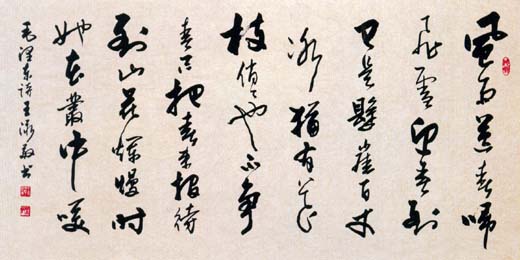 風雨送春歸
飛雪迎春到
已是懸崖百丈
冰猶有花
枝俏々也不争
春只把春来报待
到山花爛熳时
她在叢中咲
毛澤东詩王敏书